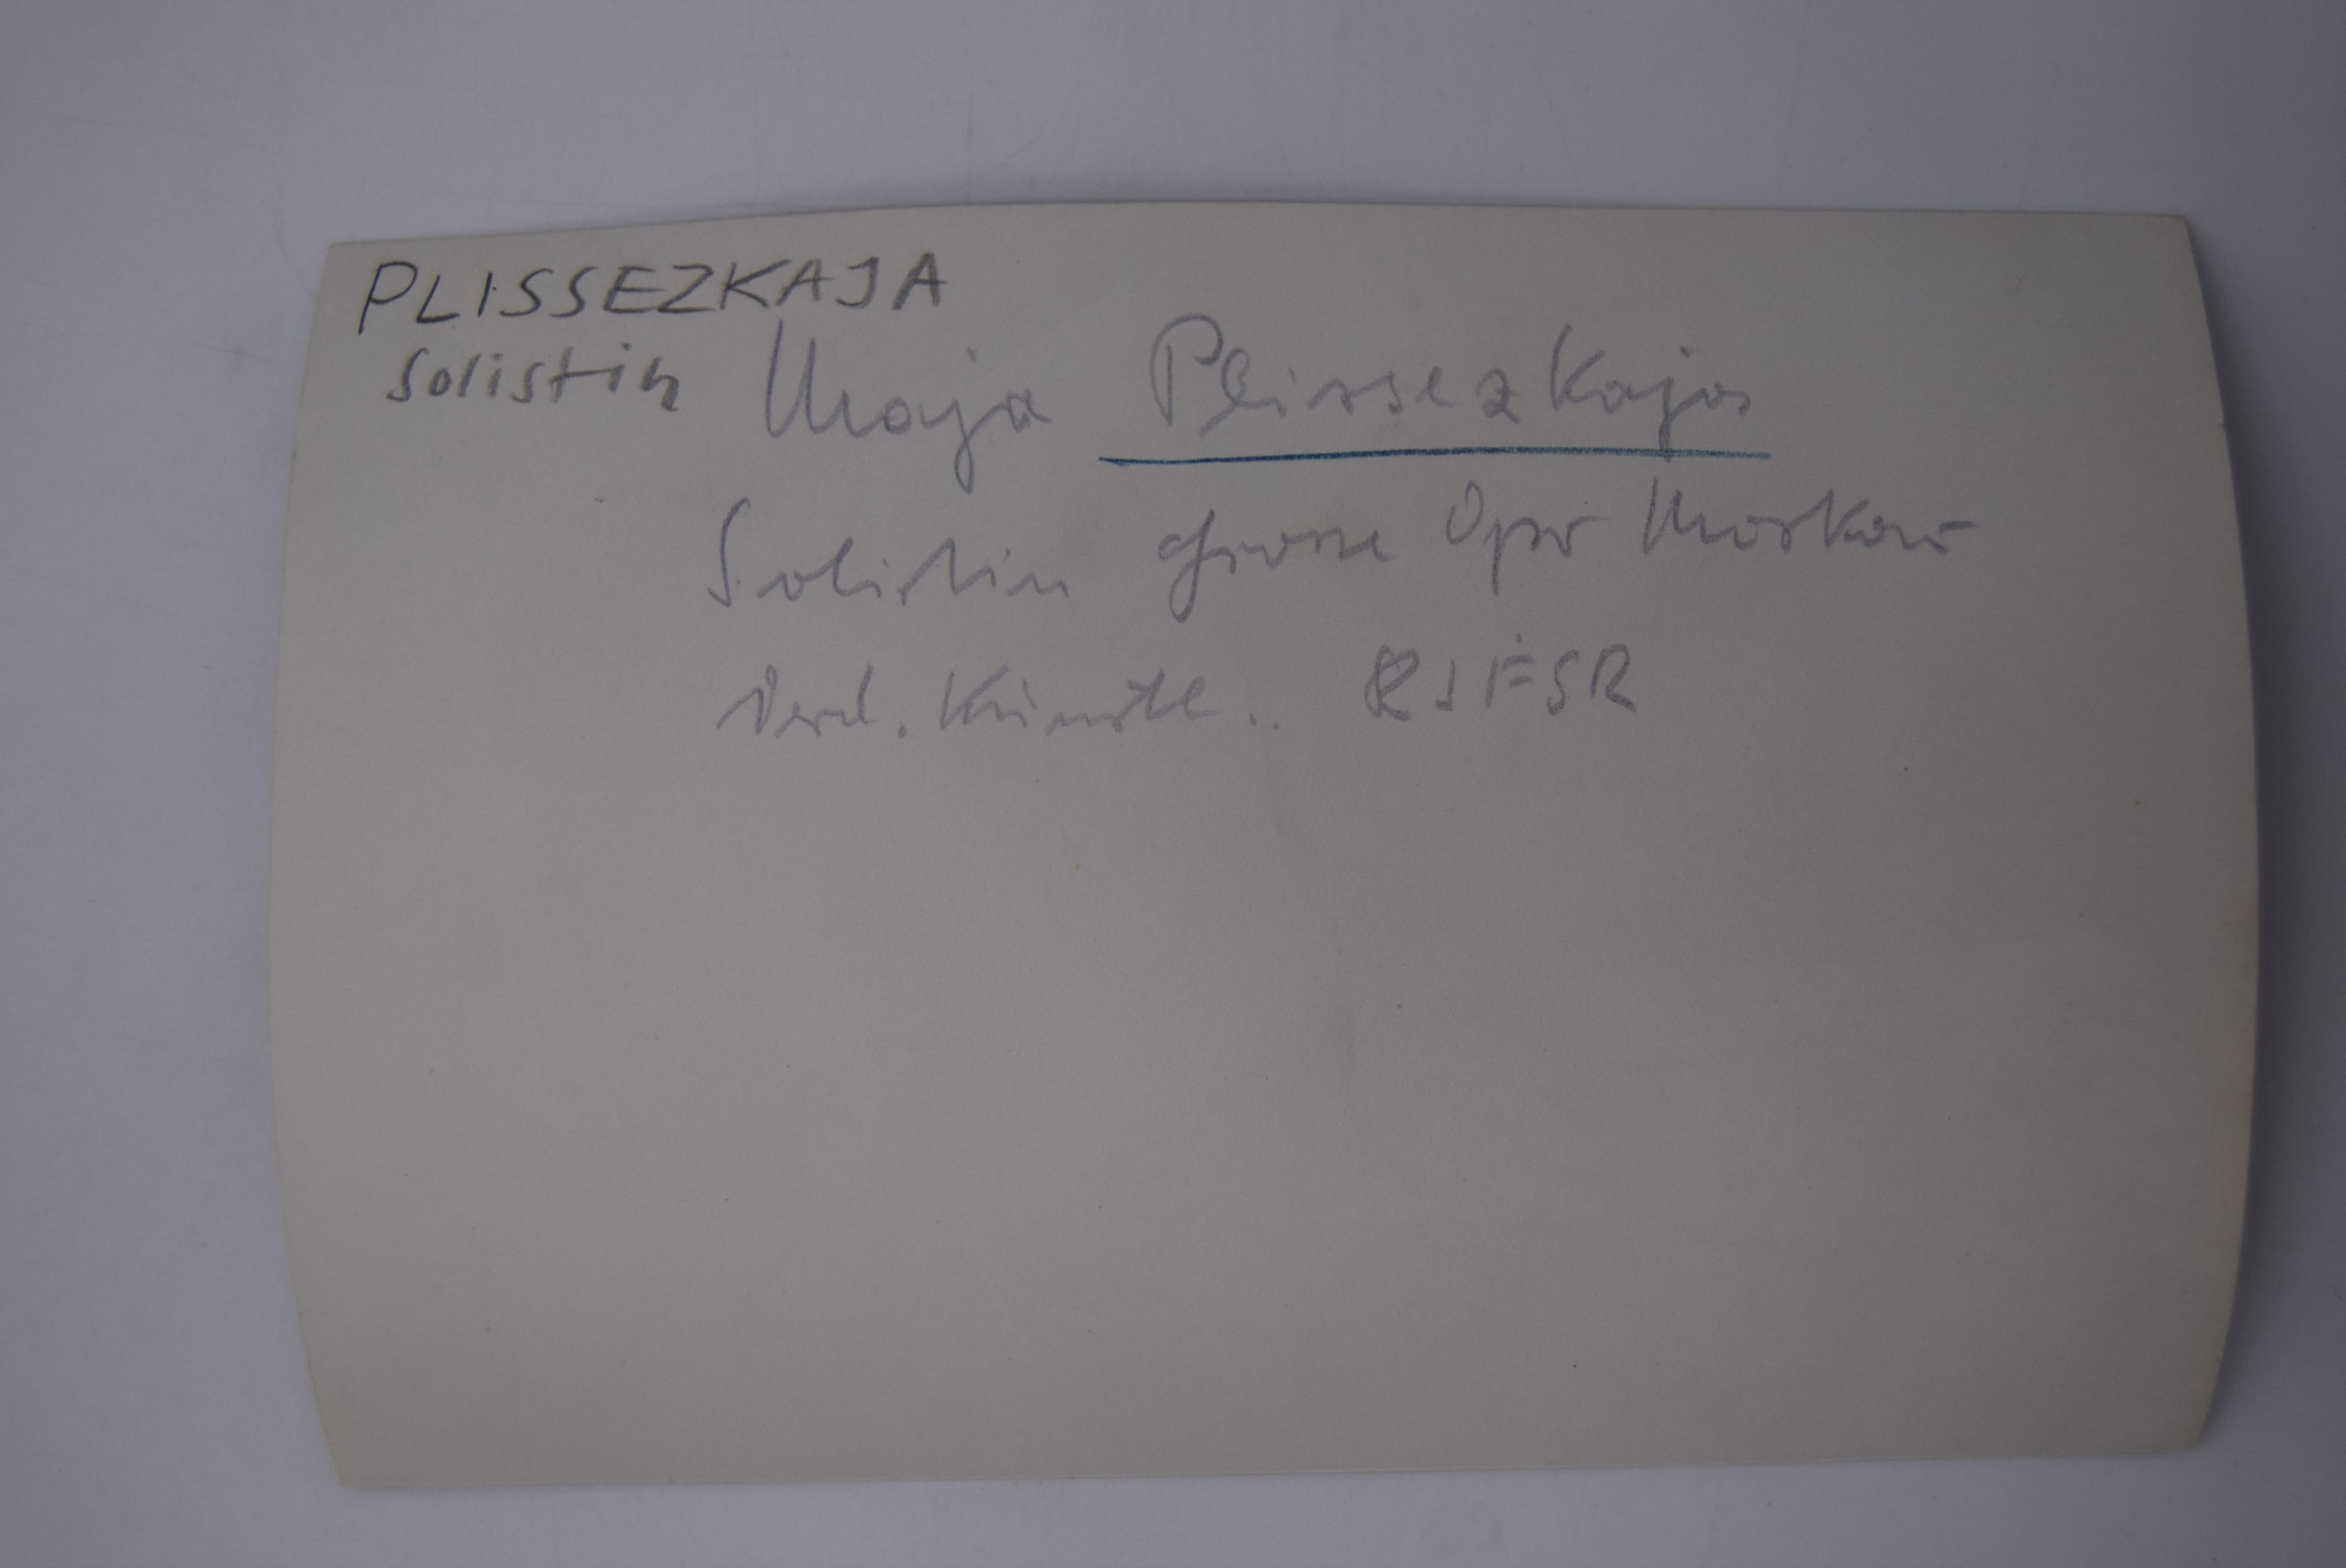 PLISSEZKAJA
Solistin
Maja Plissezkaja
Solistin Grosse Oper Moskau
Verd. Künstl.. RSFSR